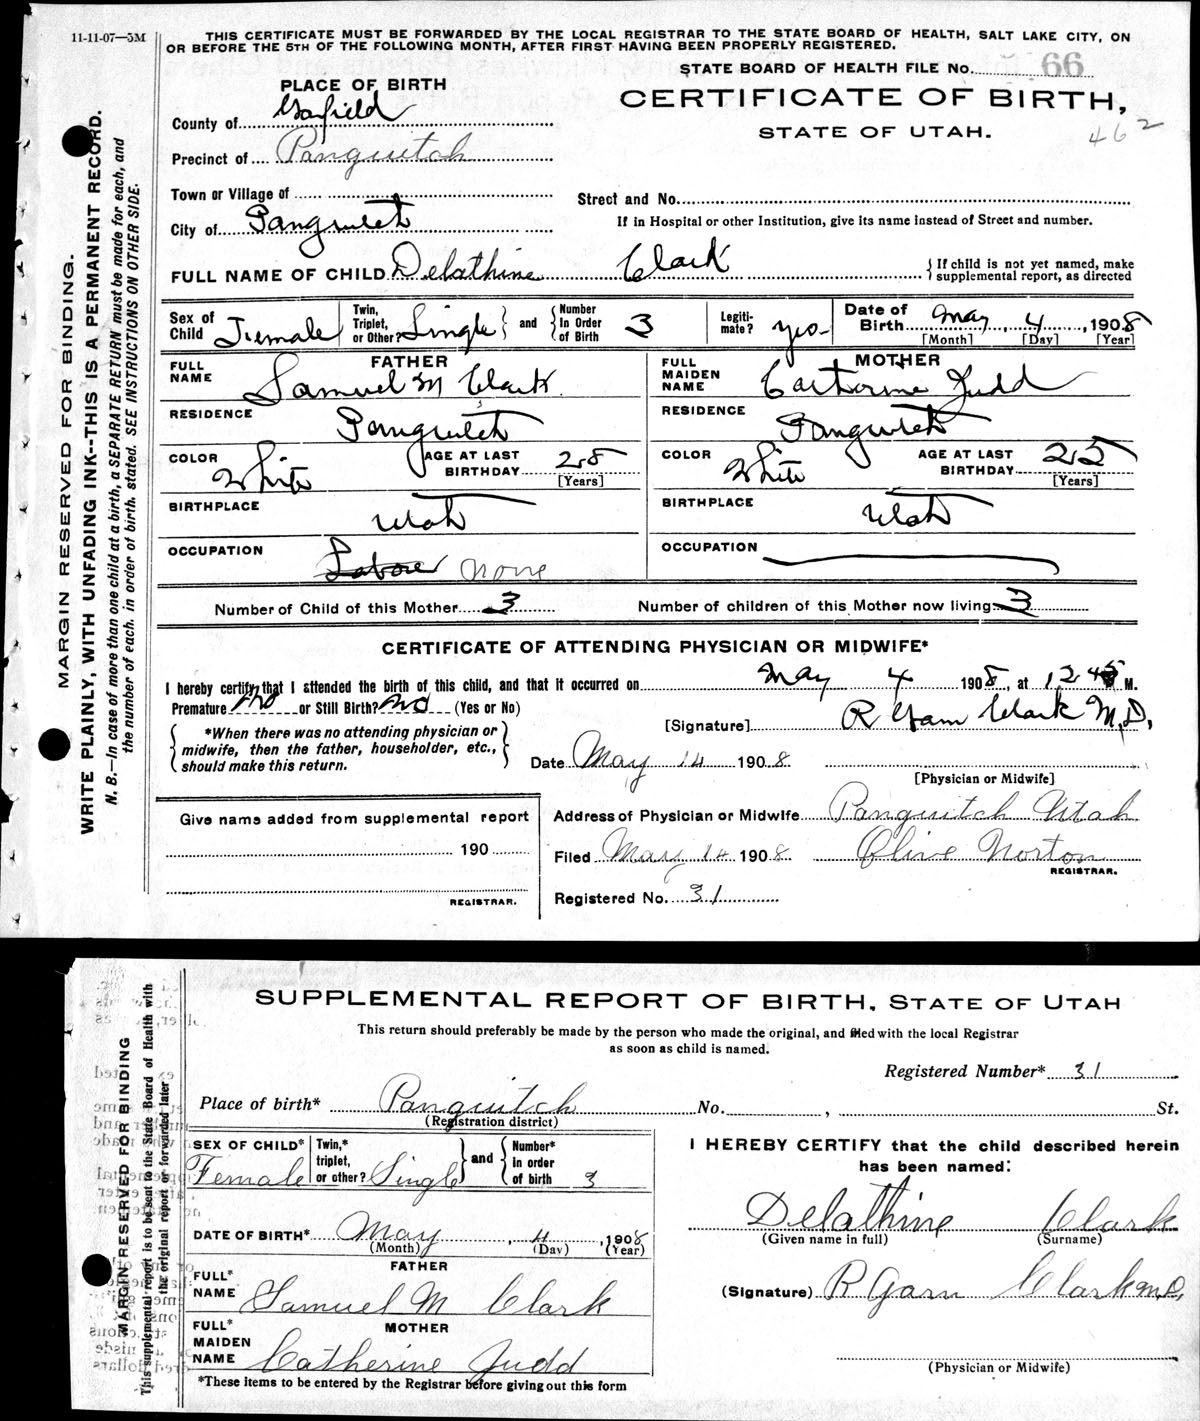 11-11-07—5M
THIS CERTIFICATE MUST BE FORWARDED BY THE LOCAL REGISTRAR TO THE STATE BOARD OF HEALTH, SALT LAKE CITY, ON
OR BEFORE THE 5TH OF THE FOLLOWING MONTH, AFTER FIRST HAVING BEEN PROPERLY REGISTERED.
STATE BOARD OF HEALTH FILE No. 66
CERTIFICATE OF BIRTH,
STATE OF UTAH.
462
PLACE OF BIRTH
County of Garfield
Precinct of Panguitch
Town or Village of
Street and No.
City of Panguitch
If in Hospital or other Institution, give its name instead of Street and number.
FULL NAME OF CHILD Delathine Clark
If child is not yet named, make
supplemental report, as directed
Sex of Child Female
Twin, Triplet, or Other? Single and Number In Order of Birth 3
Legitimate? yes
Date of Birth May 4, 1908
[Month] [Day] [Year]
FATHER
FULL NAME Samuel M Clark
RESIDENCE Panguitch
COLOR White
AGE AT LAST BIRTHDAY 28
[Years]
BIRTHPLACE Utah
OCCUPATION Labore None
MOTHER
FULL MAIDEN NAME Catherine Judd
RESIDENCE Panguitch
COLOR White
AGE AT LAST BIRTHDAY 25
[Years]
BIRTHPLACE Utah
OCCUPATION
Number of Child of this Mother 3
Number of children of this Mother now living 3
CERTIFICATE OF ATTENDING PHYSICIAN OR MIDWIFE*
I hereby certify that I attended the birth of this child, and that it occurred on May 4 1908, at 12 45 M.
Premature No or Still Birth? No (Yes or No)
*When there was no attending physician or
midwife, then the father, householder, etc.,
should make this return.
[Signature] R Garn Clark M.D.
Date May 14 1908.
[Physician or Midwife]
Give name added from supplemental report
190
REGISTRAR.
Address of Physician or Midwife Panguitch Utah
Filed May 14 1908. Olive Norton
REGISTRAR.
Registered No. 31
MARGIN RESERVED FOR BINDING.
WRITE PLAINLY, WITH UNFADING INK--THIS IS A PERMANENT RECORD.
N. B.—In case of more than one child at a birth, a SEPARATE RETURN must be made for each, and
the number of each. in order of birth. stated. SEE INSTRUCTIONS ON OTHER SIDE.
SUPPLEMENTAL REPORT OF BIRTH, STATE OF UTAH
This return should preferably be made by the person who made the original, and filed with the local Registrar
as soon as child is named.
Registered Number* 31
Place of birth* Panguitch No. , St.
(Registration district)
SEX OF CHILD* Female
Twin,* triplet, or other? Single and Number* in order of birth 3
DATE OF BIRTH* May 4, 1908
(Month) (Day) (Year)
FATHER
FULL* NAME Samuel M Clark
MOTHER
FULL* MAIDEN NAME Catherine Judd
*These items to be entered by the Registrar before giving out this form
I HEREBY CERTIFY that the child described herein
has been named:
Delathine Clark
(Given name in full) (Surname)
(Signature) R Garn Clark M.D.
(Physician or Midwife)
MARGIN RESERVED FOR BINDING
This supplemental report is to be sent to the State Board of Health with
the original report or forwarded later